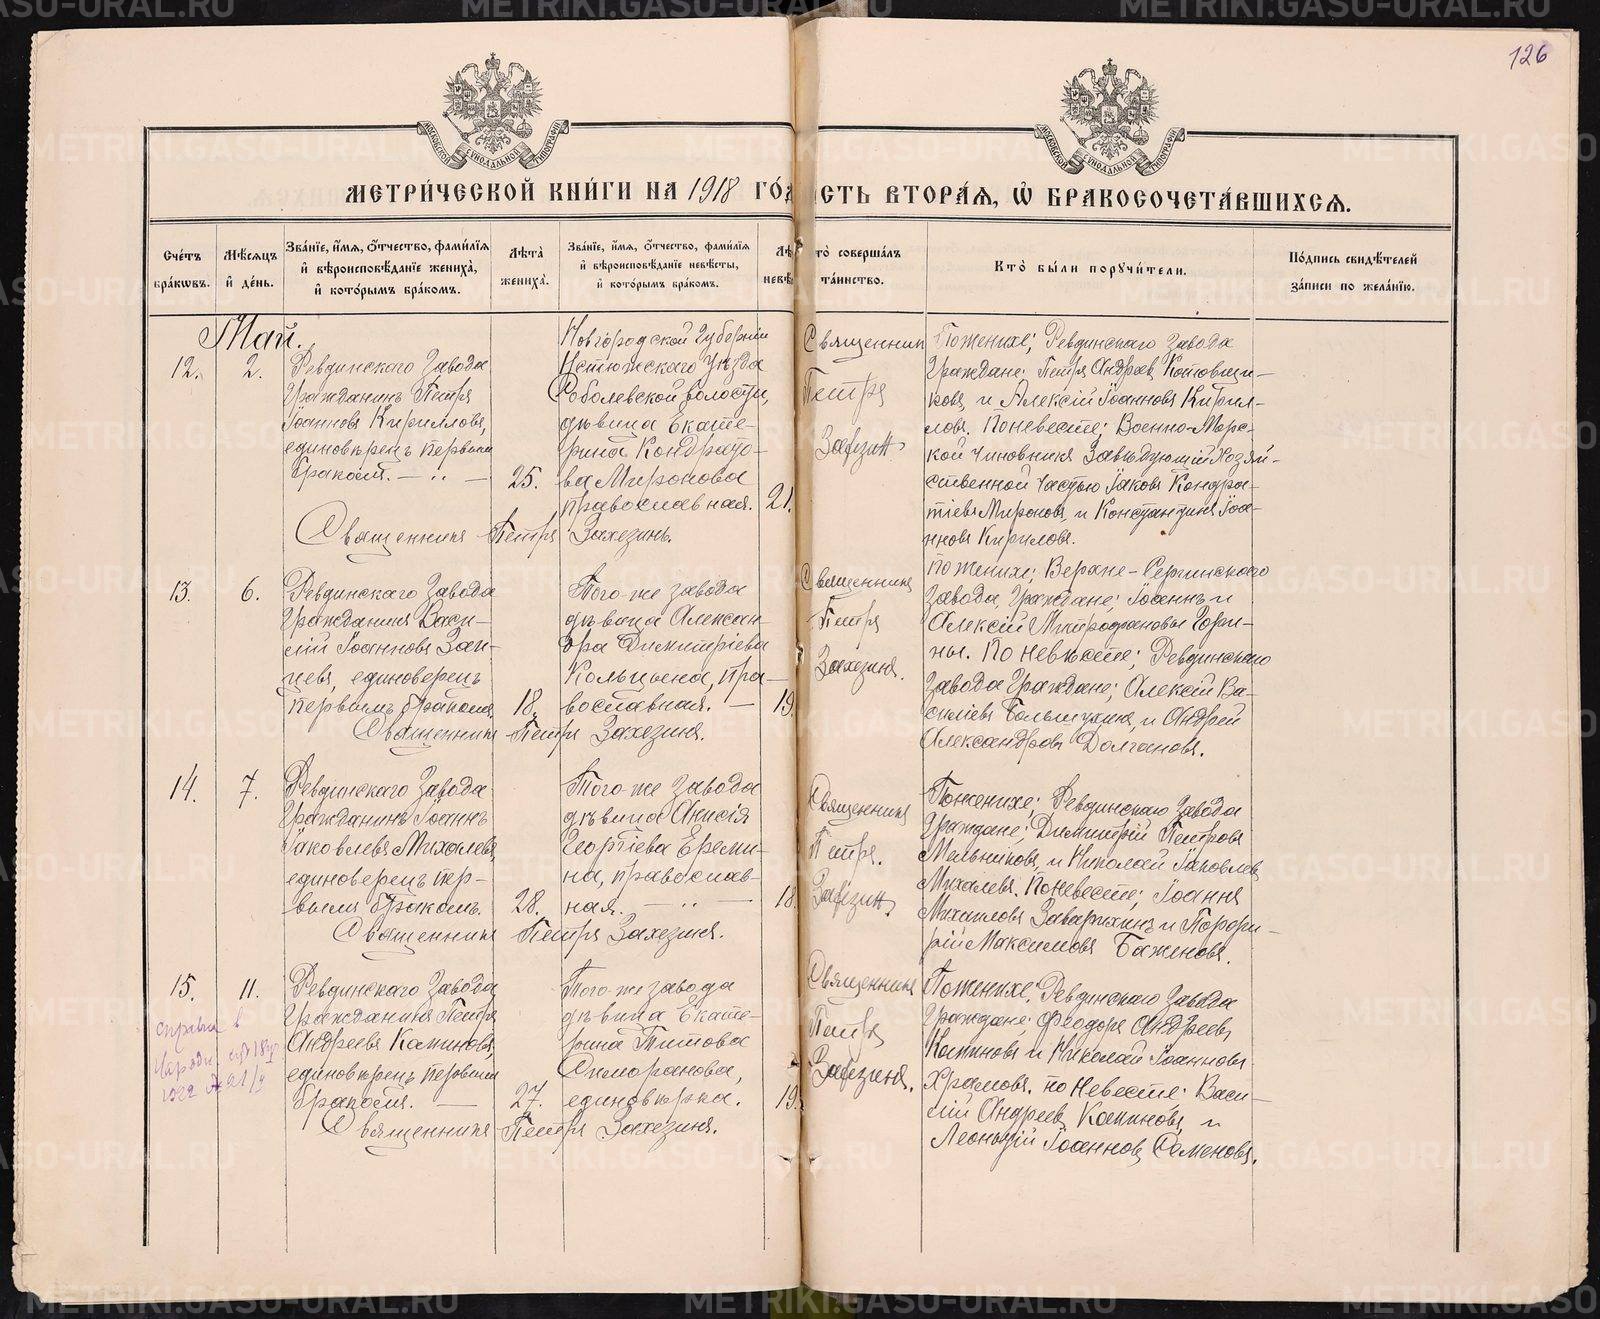 126
МОСКОВСКОЙ СѴНОДАЛЬНОЙ ТИПОГРАФІИ
МОСКОВСКОЙ СѴНОДАЛЬНОЙ ТИПОГРАФІИ
МЕТРИ́ЧЕСКОЙ КНИ́ГИ НА 1918 ГО́Д
СТЬ ВТОРА́Я, Ѡ҆ БРАКОСОЧЕТА́ВШИХСЯ.
Сче́тъ бра́кѡвъ.
Мѣ́сяцъ и҆ де́нь.
Зва́нїе, и҆́мя, ѻ҆́тчество, фами́лїя и҆ вѣроисповѣ́данїе жениха̀, и҆ кото́рымъ бра́комъ.
Лѣ́та̀ жениха̀.
Зва́нїе, и҆́мя, ѻ҆́тчество, фами́лїя и҆ вѣроисповѣ́данїе невѣ́сты, и҆ кото́рымъ бра́комъ.
Лѣ
невѣ
то̀ соверша́лъ та́инство.
Кто̀ бы́ли поручи́тели.
По́дпись свидѣ́телей за́писи по жела́нїю.
Май.
12.
2.
Ревдинскаго Завода
Гражданинъ Петръ
Іоанновъ Кирилловъ,
единовѣрецъ первымъ
бракомъ. — „ —
25.
Новгородской Губерніи
Устюжскаго Уѣзда
Соболевской волости,
дѣвица Екате-
рина Кондрать-
ва Миронова
православная.
21.
Священникъ Петръ Захезинъ.
Священник
Петръ
Захезин
По женихе; Ревдинскаго Завода
Граждане; Петръ Андреев Коновщи-
ковъ, и Алексій Іоанновъ Кирил-
ловъ. По невесте; Военно-Морс-
кой Чиновникъ Завѣдующій Хозяй-
ственной Частью Іаковъ Кондра-
тіевъ Мироновъ, и Константинъ Іоа-
нновъ Кириловъ.
13.
6.
Ревдинскаго Завода
Гражданинъ Васи-
лій Іоанновъ Зап-
невъ, единоверецъ
первымъ бракомъ.
18.
Того-же завода
дѣвица Алексан-
дра Димитріева
Кольцова, пра-
вославная. —
19.
Священникъ Петръ Захезинъ.
Священникъ
Петръ
Захезинъ.
По женихе; Верхне-Сергинскаго
Завода, Граждане; Іоаннъ и
Алексій Митрофановы Гори-
ны. По невѣсте; Ревдинскаго
Завода Граждане; Алексій Ва-
силіевъ Большухинъ, и Андрей
Александровъ Долгановъ.
14.
7.
Ревдинскаго Завода
Гражданинъ Іоаннъ
Іаковлевъ Михалевъ,
единоверецъ пер-
вымъ бракомъ.
28.
Того-же Завода
дѣвица Анисія
Георгіева Ереми-
на, православ-
ная. — „ —
18.
Священникъ Петръ Захезинъ.
Священникъ
Петръ.
Захезин
По женихе; Ревдинскаго Завода
Граждане; Димитрій Петровъ
Мельниковъ, и Николай Іаковлев
Михалевъ. По невесте; Іоаннъ
Михаиловъ Заварихинъ и Порфи-
рій Максимовъ Баженовъ.
15.
11.
справка в
Ревдинскаго Завода
Гражданинъ Петръ
Андреевъ Капиновъ,
единовѣрецъ первымъ
бракомъ. —
27.
Того-же завода
дѣвица Екате-
рина Титова
Симоранова,
единовѣрка.
19.
Священникъ Петръ Захезинъ.
Священникъ
Петръ
Захезинъ.
По женихе; Ревдинскаго Завода
Граждане; Феодоръ Андреевъ
Капиновъ и Николай Іоанновъ
Храмовъ. по Невесте: Васи-
лій Андреев Капиновъ, и
Леонтій Іоаннов Семеновъ.
METRIKI.GASO-URAL.RU